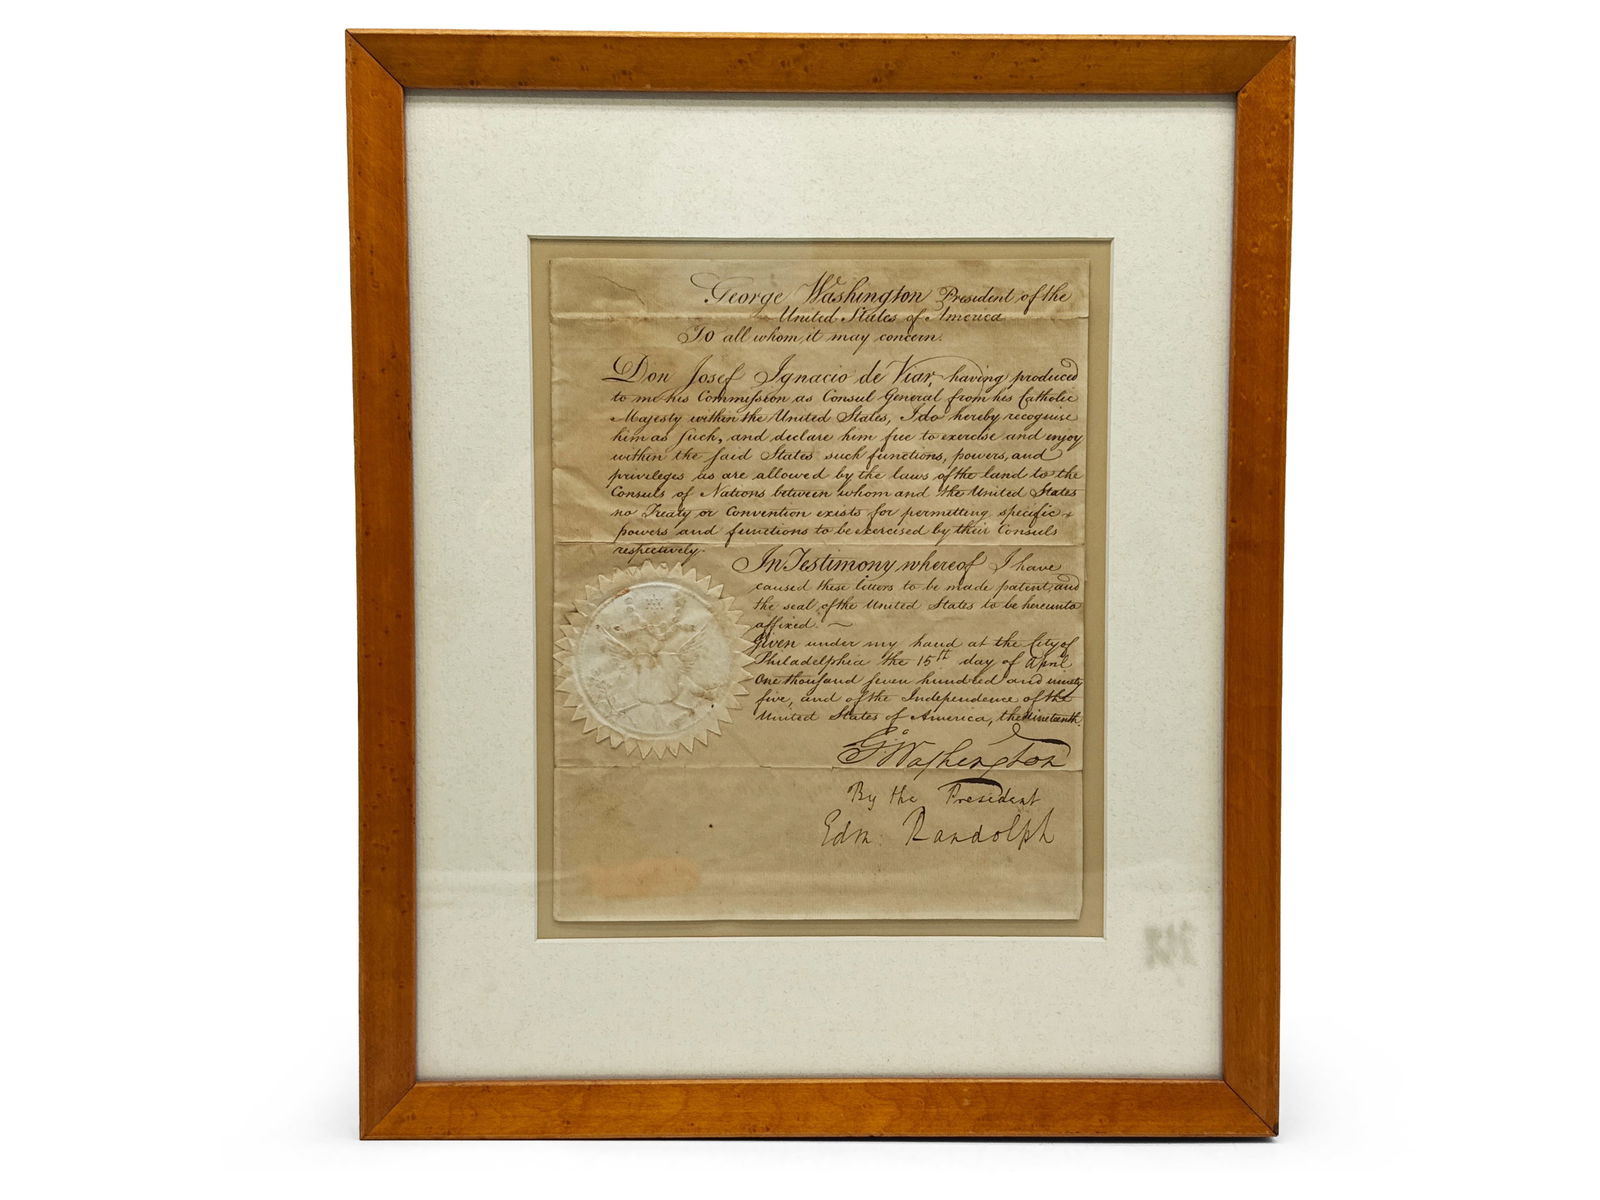 George Washington President of the
United States of America
To all whom it may concern.
Don Josef Ignacio de Viar, having produced
to me his Commission as Consul General from his Catholic
Majesty within the United States, I do hereby recognise
him as such, and declare him free to exercise and enjoy
within the said States such functions, powers, and
privileges as are allowed by the laws of the land to the
Consuls of Nations between whom and the United States
no Treaty or Convention exists for permitting specific
powers and functions to be exercised by their Consuls
respectively.
In Testimony whereof I have
caused these letters to be made patent, and
the seal of the United States to be hereunto
affixed. ~
Given under my hand at the City of
Philadelphia the 15th day of April
One thousand seven hundred and ninety
five, and of the Independence of the
United States of America, the Nineteenth.
Go: Washington
By the President
Edm: Randolph